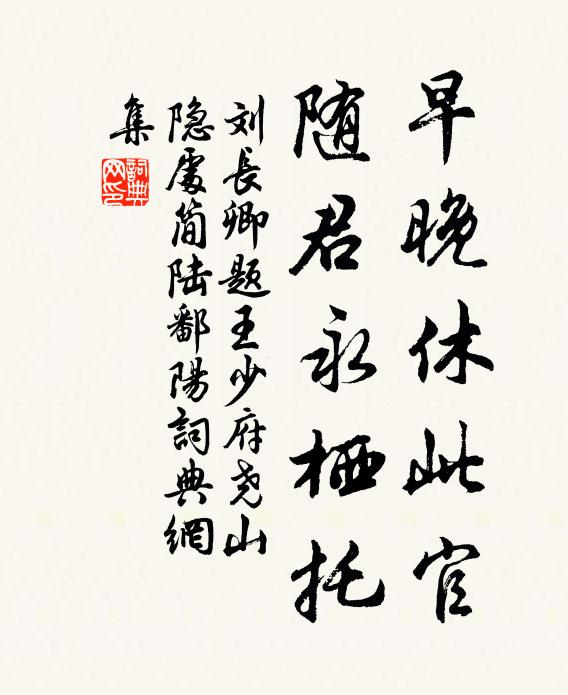 早晚休此官
随君永栖托
刘長卿题王少府尧山
隐處简陆鄱陽詞典網
集
詞典
网印